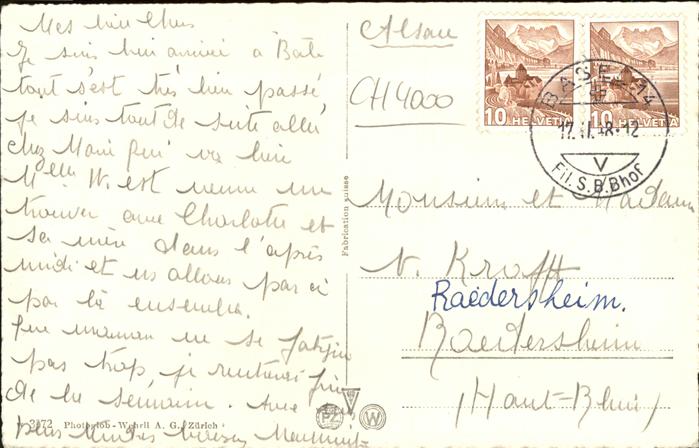 Mes bien chers
Je suis bien arrivée à Bâle
tout s'est très bien passé,
je suis tout de suite allée
chez qui va bien
Melle W. est venue me
trouver avec Charlotte et
sa mère dans l'après
midi et ns allons par ci
par là ensemble.
Que maman ne se fatigue
pas trop, je rentrerai fin
de la semaine. Avec
plus
3972 Photoglob-Wehrli A. G., Zürich
Fabrication suisse
PZ
W
Alsace
CH 4000
10 HELVETIA
10 HELVETIA
BASEL 14
17.II.48-12
V
Fil. S.B.Bhof
Monsieur et Madame
N. Krafft
Raedersheim.
Raedersheim
(Haut-Rhin)